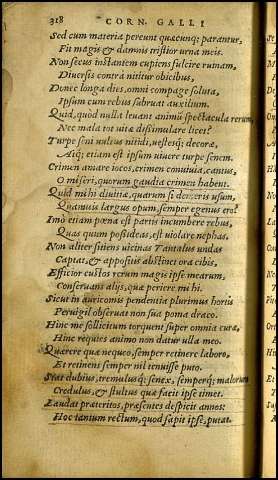 318 CORN. GALLI
Sed cum materia pereunt quæcunq; parantur,
Fit magis & damnis tristior urna meis.
Non secus instantem cupiens fulcire ruinam,
Diuersis contrà nititur obicibus,
Donec longa dies, omni compage soluta,
Ipsum cum rebus subruat auxilium.
Quid, quòd nulla leuant animũ spectacula rerum,
Nec mala tot uitæ dissimulare licet?
Turpe seni uultus nitidi, uestesq; decoræ,
Atq; etiam est ipsum uiuere turpe senem.
Crimen amare iocos, crimen conuiuia, cantus,
O miseri, quorum gaudia crimen habent.
Quid mihi diuitiæ, quarum si demeris usum,
Quamuis largus opum, semper egenus ero?
Imò etiam pœna est partis incumbere rebus,
Quas quum possideas, est uiolare nephas.
Non aliter sitiens uicinas Tantalus undas
Captat, & appositis abstinet ora cibis.
Efficior custos rerum magis ipse mearum,
Conseruans alijs, quæ periere mihi.
Sicut in auricomis pendentia plurimus hortis
Peruigil obseruat non sua poma draco.
Hinc me sollicitum torquent super omnia curæ,
Hinc requies animo non datur ulla meo.
Quærere quæ nequeo, semper retinere laboro,
Et retinens semper nil tenuisse puto.
Stat dubius, tremulusq; senex, semperq; malorum
Credulus, & stultus quæ facit ipse timet.
Laudat præteritos, præsentes despicit annos:
Hoc tantum rectum, quod sapit ipse, putat.